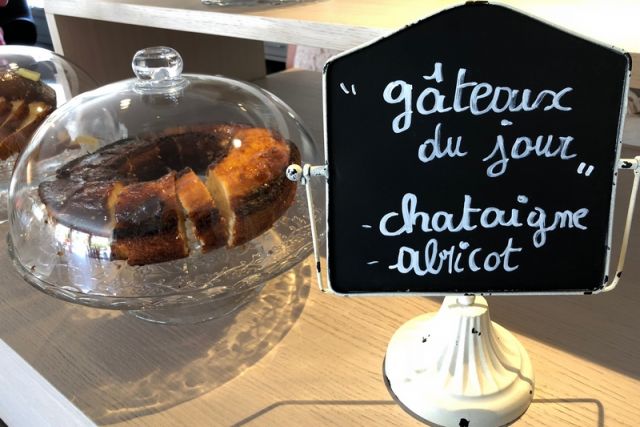 "gâteaux
du jour"
- chataigne
- abricot